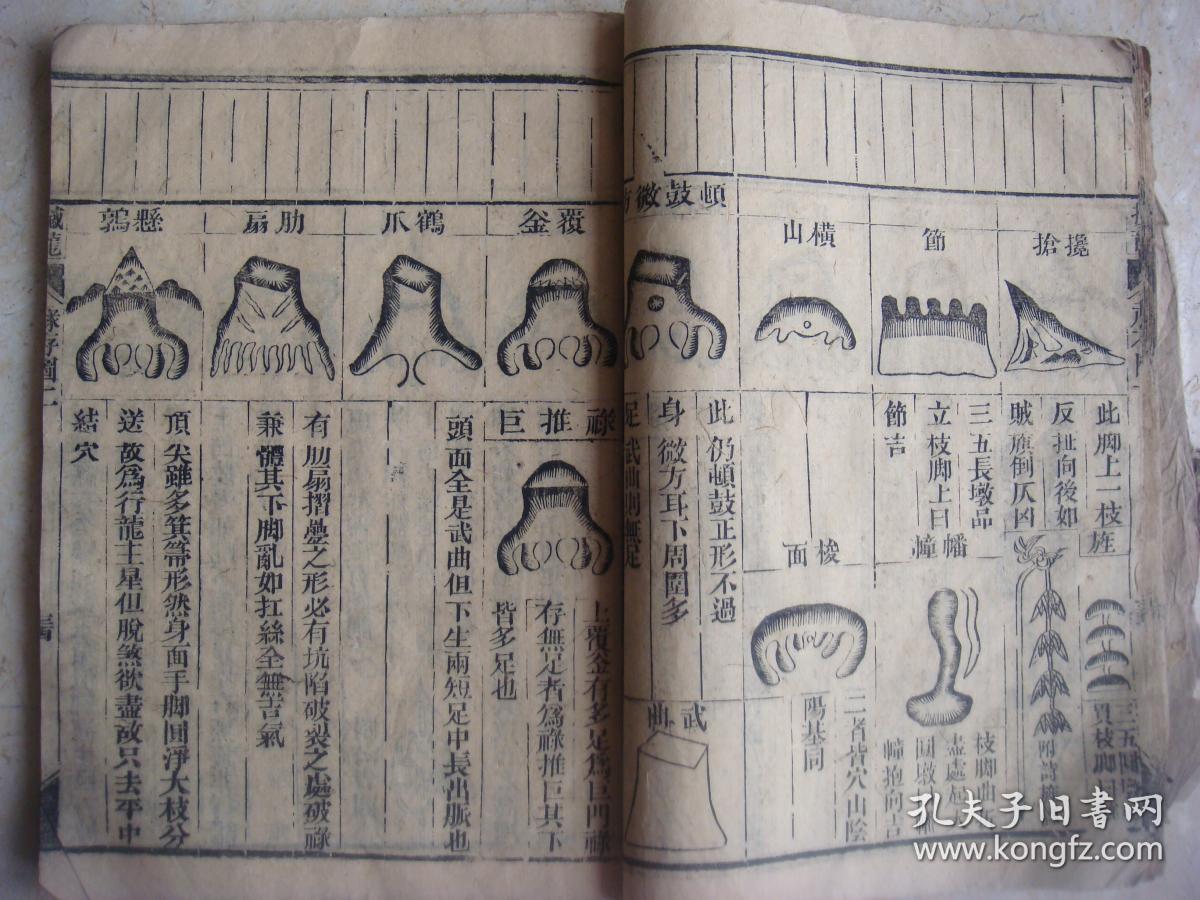 攙搶
此脚上一枝
反扯向後如
賊旗倒仄凶
旌
三五圓
貫枝脚
附詩
節
三五長墩品
立枝脚上曰
節吉
幡幢
枝脚曲
盡處起
圓墩
幢抱向吉
橫山
梭面
二者皆穴山陰
陽基同
頓鼓微方
此仍頓鼓正形不過
身微方耳下周圍多
足武曲則無足
武曲
覆釜
祿推巨
上覆釜有多足爲巨門祿
存無足者爲祿推巨其下
皆多足也
鶴爪
頭面全是武曲但下生兩短足中長出脈也
肋扇
有肋扇摺疊之形必有坑陷破裂之處破祿
兼體其下脚亂如扛絲全無吉氣
懸鶉
頂尖雖多箕箒形然身面手脚圓淨大枝分
送故爲行龍主星但脫煞欲盡故只去平中
結穴
孔夫子旧書网
www.kongfz.com